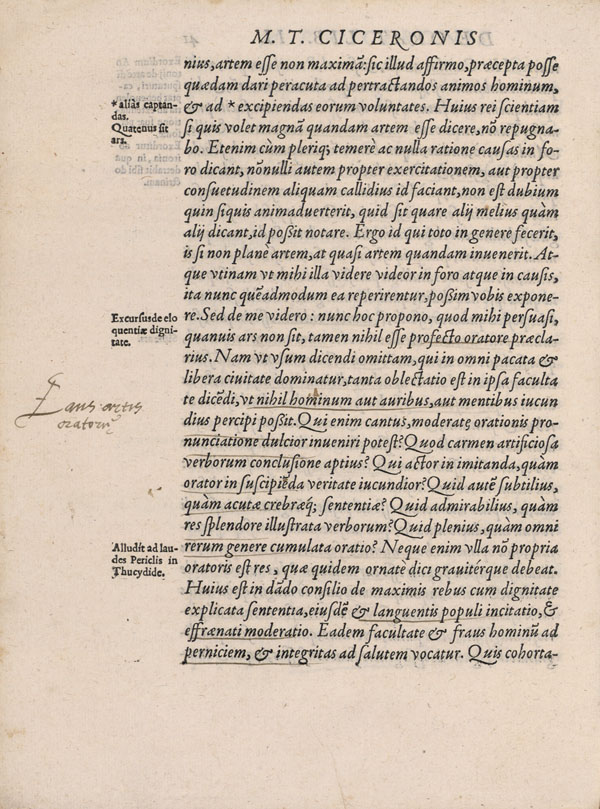 M. T. CICERONIS
nius, artem esse non maximã: sic illud affirmo, præcepta posse
quædam dari peracuta ad pertractandos animos hominum,
* aliâs captan-
das.
& ad * excipiendas eorum voluntates. Huius rei scientiam
Quatenus sit
ars.
si quis volet magnã quandam artem esse dicere, nõ repugna-
bo. Etenim cùm pleriq; temerè ac nulla ratione causas in fo-
ro dicant, nõnulli autem propter exercitationem, aut propter
consuetudinem aliquam callidius id faciant, non est dubium
quin siquis animaduerterit, quid sit quare alij melius quàm
alij dicant, id poßit notare. Ergo id qui toto in genere fecerit,
is si non planè artem, at quasi artem quandam inuenerit. At-
que vtinam vt mihi illa videre videor in foro atque in causis,
ita nunc quẽadmodum ea reperirentur, poßim vobis expone-
Excursus de elo
quentiæ digni-
tate.
re. Sed de me videro: nunc hoc propono, quod mihi persuasi,
quanuis ars non sit, tamen nihil esse profecto oratore præcla-
rius. Nam vt vsum dicendi omittam, qui in omni pacata &
libera ciuitate dominatur, tanta oblectatio est in ipsa faculta
te dicẽdi, vt nihil hominum aut auribus, aut mentibus iucun
Laus artis
oratoriæ
dius percipi poßit. Qui enim cantus, moderatę orationis pro-
nunciatione dulcior inueniri potest? Quod carmen artificiosa
verborum conclusione aptius? Qui actor in imitanda, quàm
orator in suscipiẽda veritate iucundior? Quid autẽ subtilius,
quàm acutæ crebræq; sententiæ? Quid admirabilius, quàm
res splendore illustrata verborum? Quid plenius, quàm omni
Alludit ad lau-
des Periclis in
Thucydide.
rerum genere cumulata oratio? Neque enim vlla nõ propria
oratoris est res, quæ quidem ornatè dici grauitérque debeat.
Huius est in dãdo consilio de maximis rebus cum dignitate
explicata sententia, eiusdẽ & languentis populi incitatio, &
effrænati moderatio. Eadem facultate & fraus hominũ ad
perniciem, & integritas ad salutem vocatur. Quis cohorta-